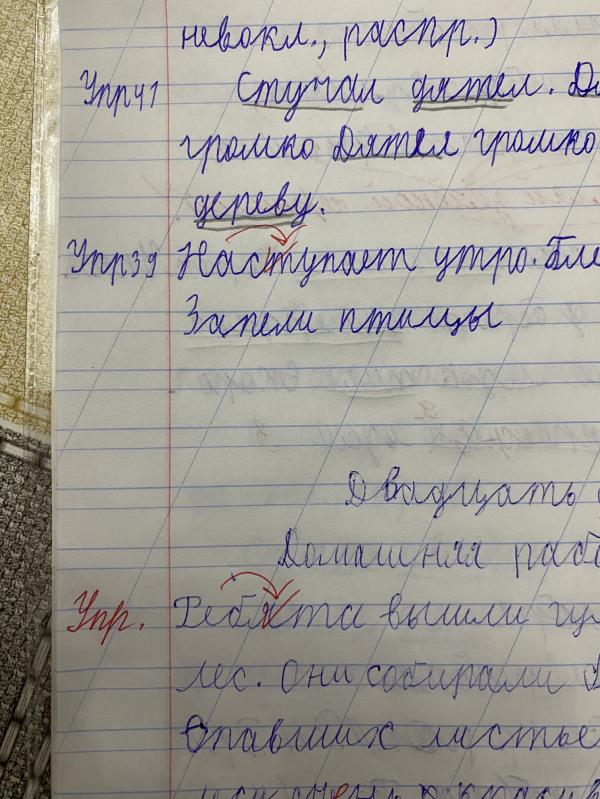 невокл., распр.)
Упр41 Стучал дятел. Дя
громко Дятел громко
дереву.
Упр39 Наступает утро. Бле
Запели птицы
Двадцать
Домашняя раб
Упр. Ребята вышли гул
лес. Они собирали
Опавших листье